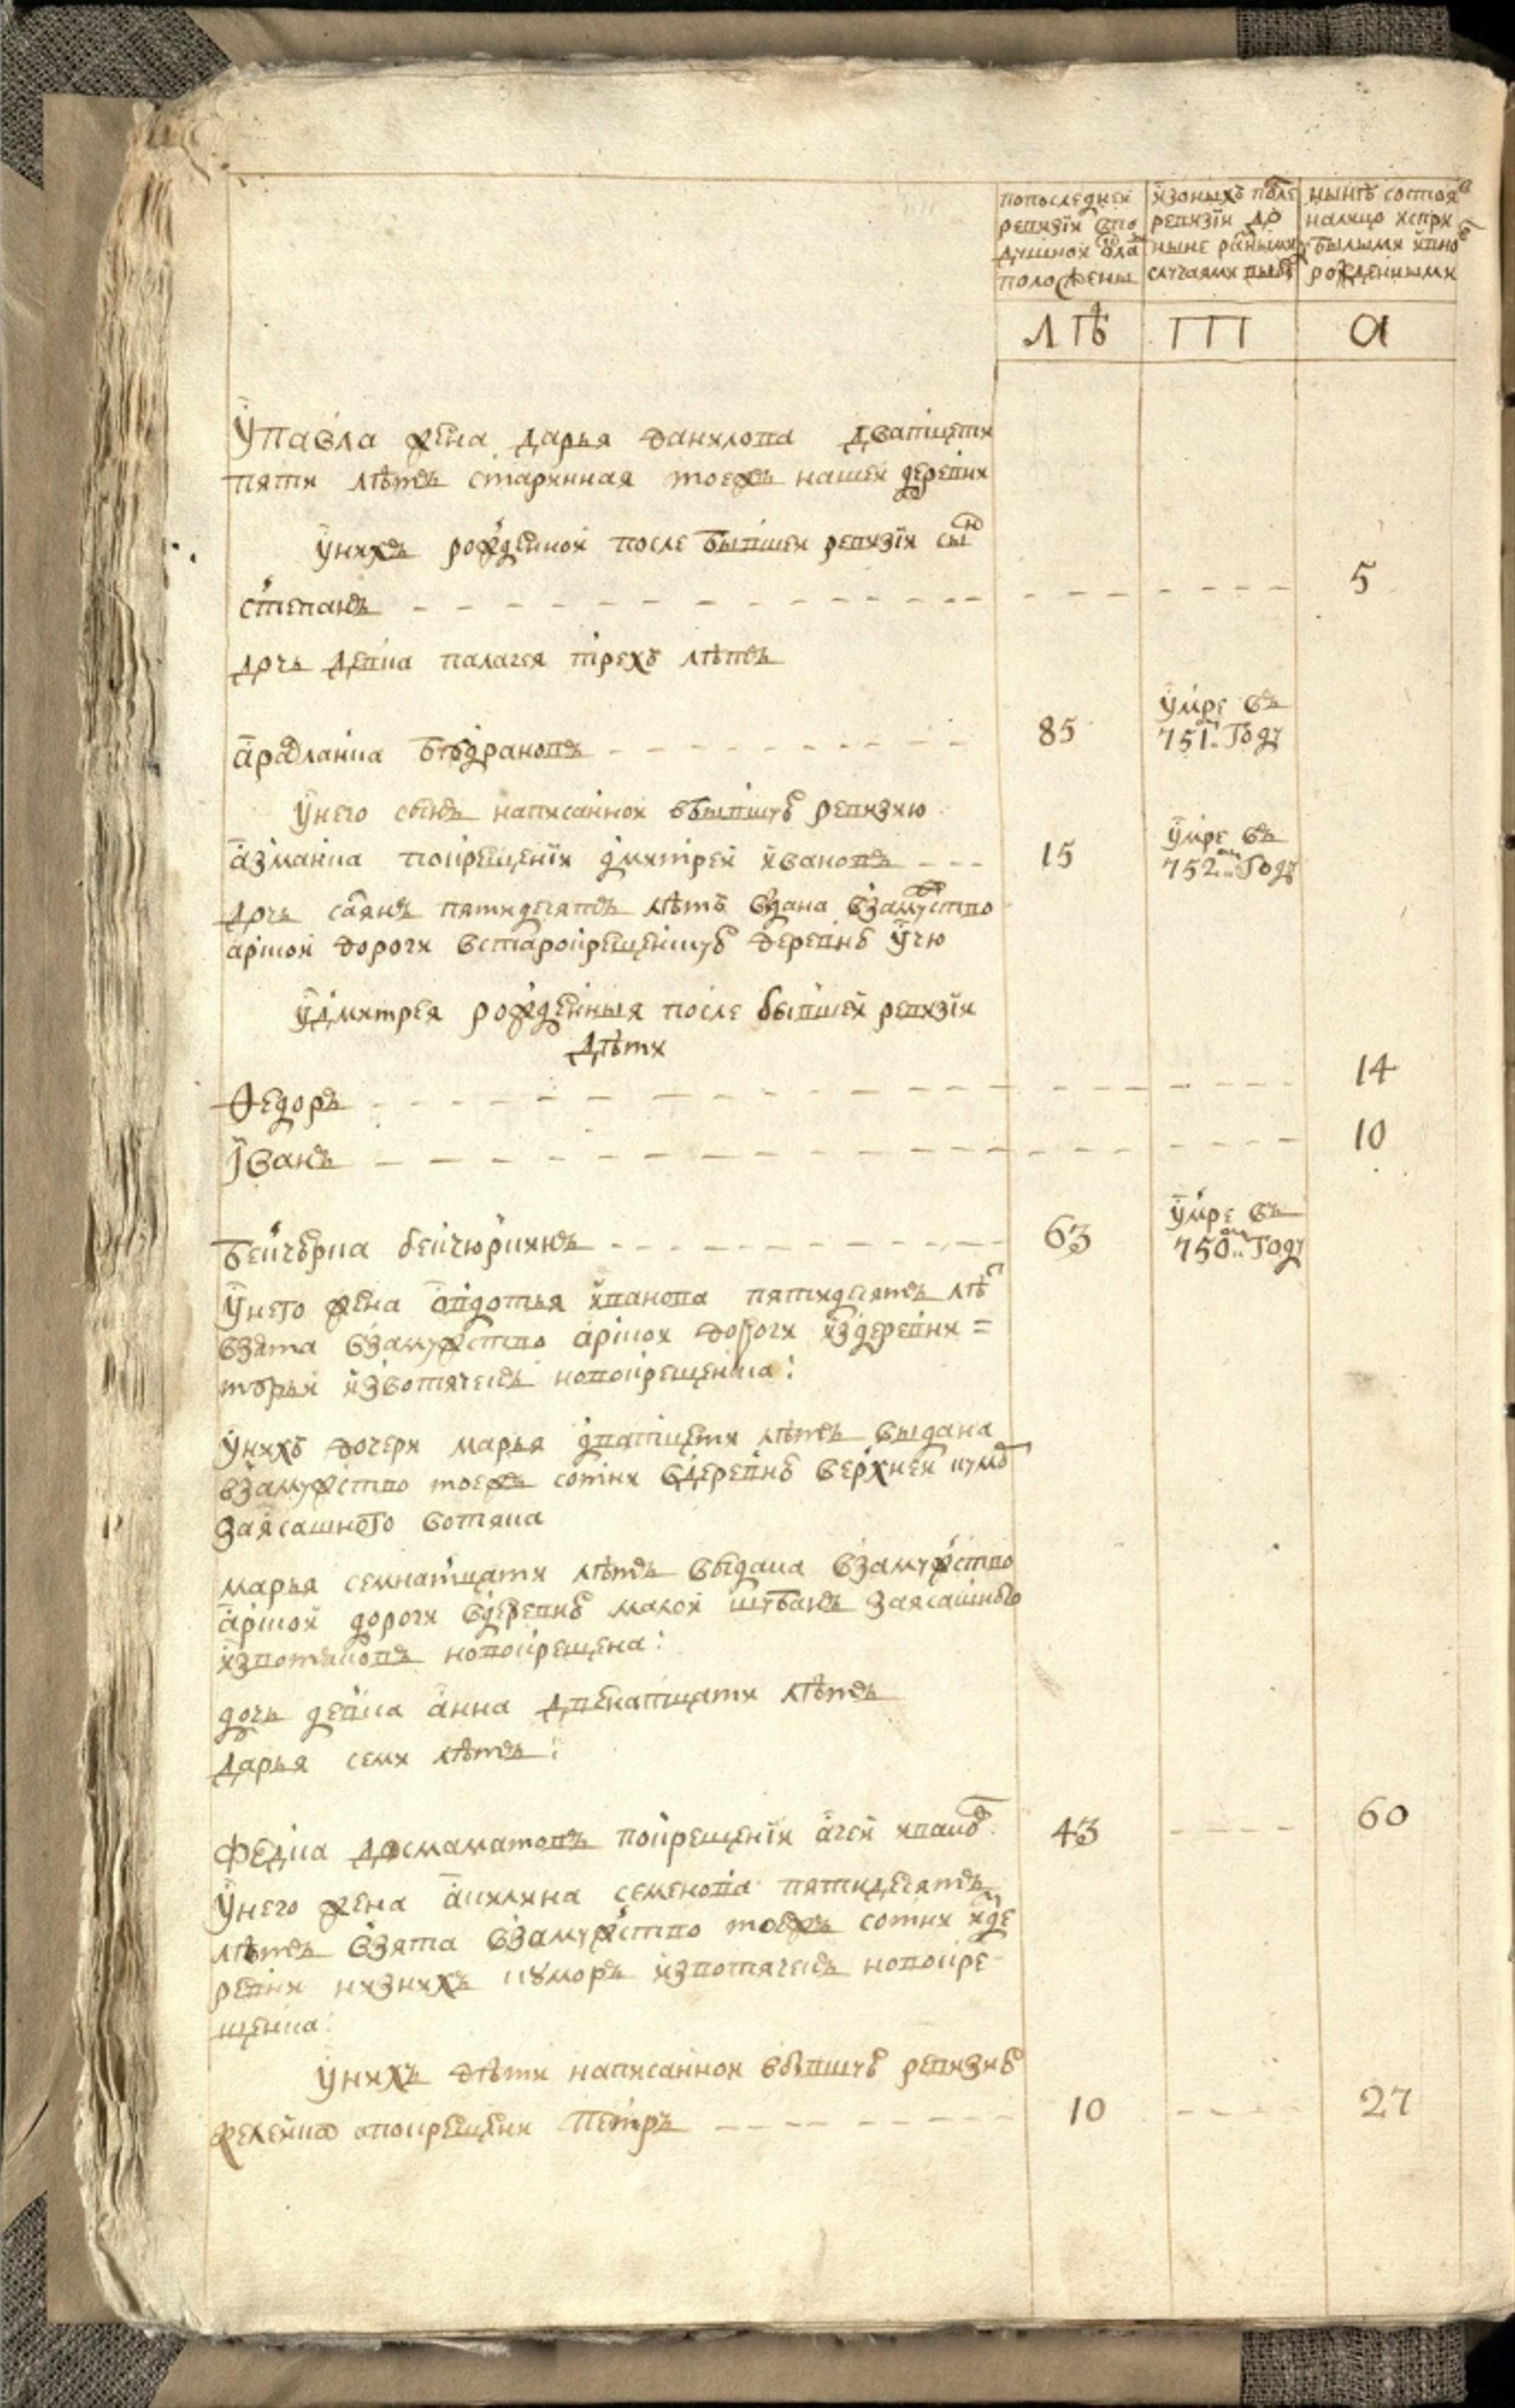 попоследней
ревизiи впо
душной окла
положены
изоныхъ после
ревизiи до
ныне разными
случаями выбы
нынѣ состоя
налицо испри
былыми ивно
рожденными
лѣ
а
упавла жена дарья данилова дватцети
пяти лѣтъ старинная тоежъ нашей деревни
унихъ рожденной после бывшей ревизiи сынъ
степанъ 5
дочь девка палагея трехъ лѣтъ
арасланка бѣдрановъ 85 умре въ
751м году
унего сынъ написанной вбывшую ревизию
азманка покрещенiи дмитрей ивановъ 15 умре въ
752м году
дочь саянъ пятидесятъ лѣтъ вдана взамуство
арской дороги встарокрещенскую деревню учю
удмитрея рожденныя после бывшей ревизiи
дѣти
Ѳедоръ 14
Iванъ 10
бекчюрка бекчюринъ 63 умре въ
750м году
унего жена овдотья иванова пятидесятъ лѣтъ
взята взамужство арской дороги издеревни =
извотячекъ новокрещенка:
унихъ дочери марья дватцети лѣтъ выдана
взамужство тоежъ сотни вдеревню верхней кумо
заясашного вотяка
марья семнатцати лѣтъ выдана взамужство
арской дороги вдеревню малой шубанъ заясашного
извотяковъ новокрещена:
дочь девка анна двенатцати лѣтъ
дарья семи лѣтъ:
федка досмаматовъ покрещенiи агей ивановъ 43 60
унего жена акилина семенова пятидесятъ
лѣтъ взята взамужство тоежъ сотни изде
ревни нижнихъ куморъ извотячекъ новокре
щенка:
унихъ дѣти написанной вбывшую ревизию
желейка апокрещени петръ 10 27